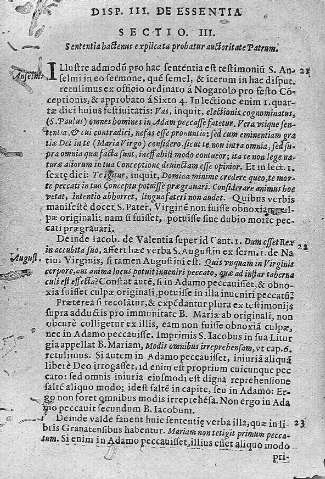 DISP. III. DE ESSENTIA
SECTIO. III.
Sententia hactenus explicata probatur auctoritate Patrum.
Illustre admodũ pro hac sententia est testimoniũ S. An- 21
Anselm. selmi in eo sermone, quẽ semel, & iterum in hac disput.
retulimus ex officio ordinato à Nogarolo pro festo Cõ-
ceptionis, & approbato à Sixto 4. In lectione enim 1. quar-
tæ diei huius festiuitatis: Vas, inquit, electionis cognominatus,
(S. Paulus) omnes homines in Adam peccasse fatetur. Vera vtique sen-
tentia, & cui contradici, nefas esse pronuntio; sed cum eminentiam gra-
tiæ Dei in te (Maria Virgo) considero, sicut te non intra omnia, sed su-
pra omnia quæ facta sunt, ineffabili modo contueor, ita te non lege natu-
ræ aliorum in tuo Conceptione deuinctam esse opinor. Et in lect. 1.
sextæ diei: Tegitur, inquit, Domina minime credere queo, te mor-
te peccati in tuo Conceptu potuisse prægrauari. Considerare animus hoc
vetat, intentio abhorret, lingua fateri non audet. Quibus verbis
manifestè docet S. Pater, Virginẽ non fuisse obnoxiã cul-
pæ originali; nam si fuisset, potuisse sine dubio morte pec-
cati prægrauari.
Deinde Iacob. de Valentia super id Cant. 1. Dum esset Rex 22
in accubitu suo, affert hæc verba S. Augustin ex serm. de Na-
August. tiu. Virginis, si tamen Augustini est. Quis
corpore, cui anima locus potuit inueniri peccato, quæ ad instar taberna
culi est effecta? Constat autẽ, si in Adamo peccauisset, & ob-
noxia fuisset culpæ originali, potuisse in illa inueniri peccatũ?
Præterea si recolãtur, & expẽdantur plura ex testimonijs
supra adductis pro immunitate B. Mariæ ab originali, non
obscurè colligetur ex illis, eam non fuisse obnoxiã culpæ,
nec in Adamo peccauisse. Imprimis S. Iacobus in sua Litur
gia appellat B. Mariam, Modis omnibus irreprehensam, vt cap. 6.
retulimus. Si autem in Adamo peccauisset, iniuriã aliquã
liberè Deo irrogasset, id enim est proprium cuiuscunque pec
cato: sed omnis iniuria eiusmodi est digna reprehensione
saltẽ aliquo modo; idest saltẽ in capite, seu in Adamo: Er-
go non foret omnibus modis irreprehẽsa. Non ergo in Ada
mo peccauit secundum B. Iacobum.
Deinde valde fauent huic sententiæ verba illa, quæ in li- 23
bris Granatensibus habentur. Mariam non tetigit primum pecca-
tum. Si enim in Adamo peccauisset, illius esset aliquo modo
pri-